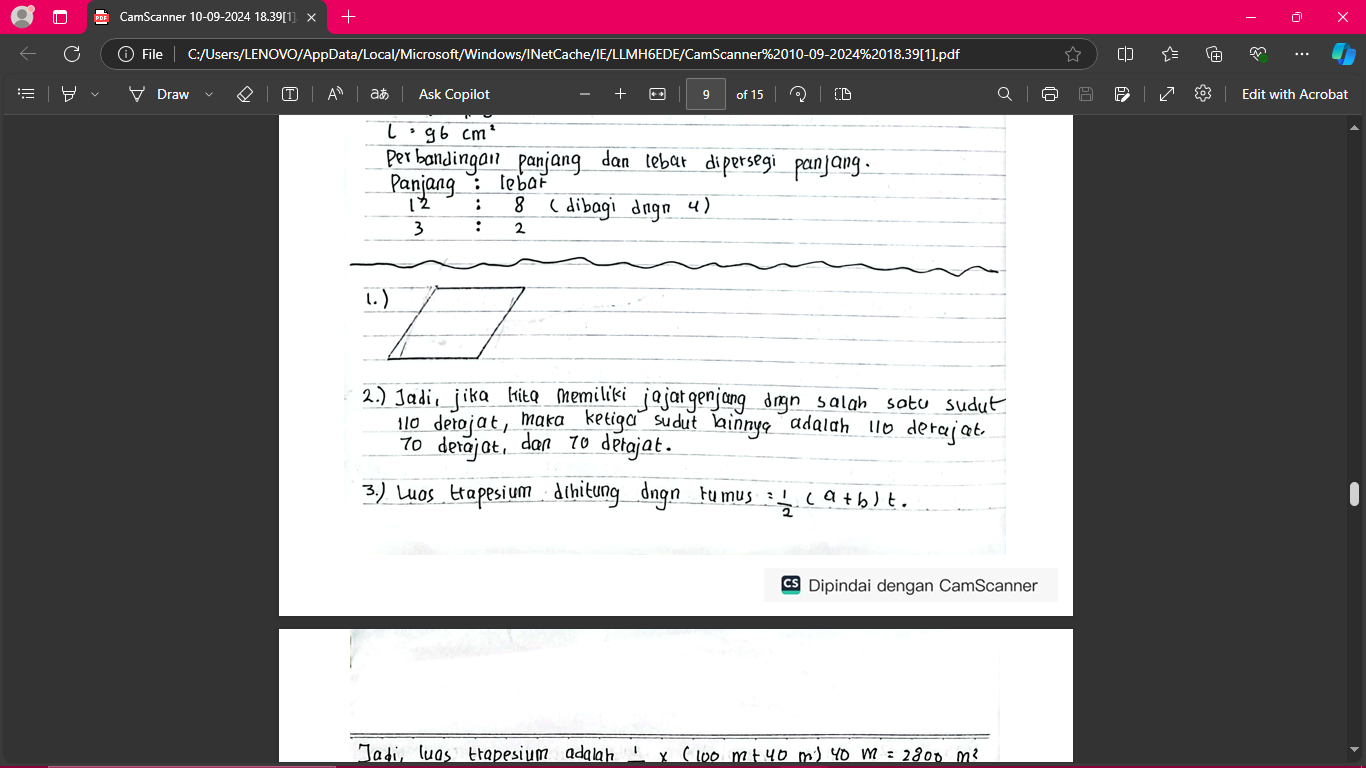 CamScanner 10-09-2024 18.39[1]
File
C:/Users/LENOVO/AppData/Local/Microsoft/Windows/INetCache/IE/LLMH6EDE/CamScanner%2010-09-2024%2018.39[1].pdf
Draw
aあ
Ask Copilot
9 of 15
Edit with Acrobat
L = 96 cm²
Perbandingan panjang dan lebar dipersegi panjang.
Panjang : lebar
12 : 8 (dibagi dngn 4)
3 : 2
1.)
2.) Jadi, jika kita memiliki jajargenjang dngn salah satu sudut
110 derajat, maka ketiga sudut lainnya adalah 110 derajat,
70 derajat, dan 70 derajat.
3.) Luas trapesium dihitung dngn rumus = 1/2 (a+b) t.
CS Dipindai dengan CamScanner
Jadi, luas trapesium adalah 1 x (100 m + 40 m) 40 m = 2800 m²